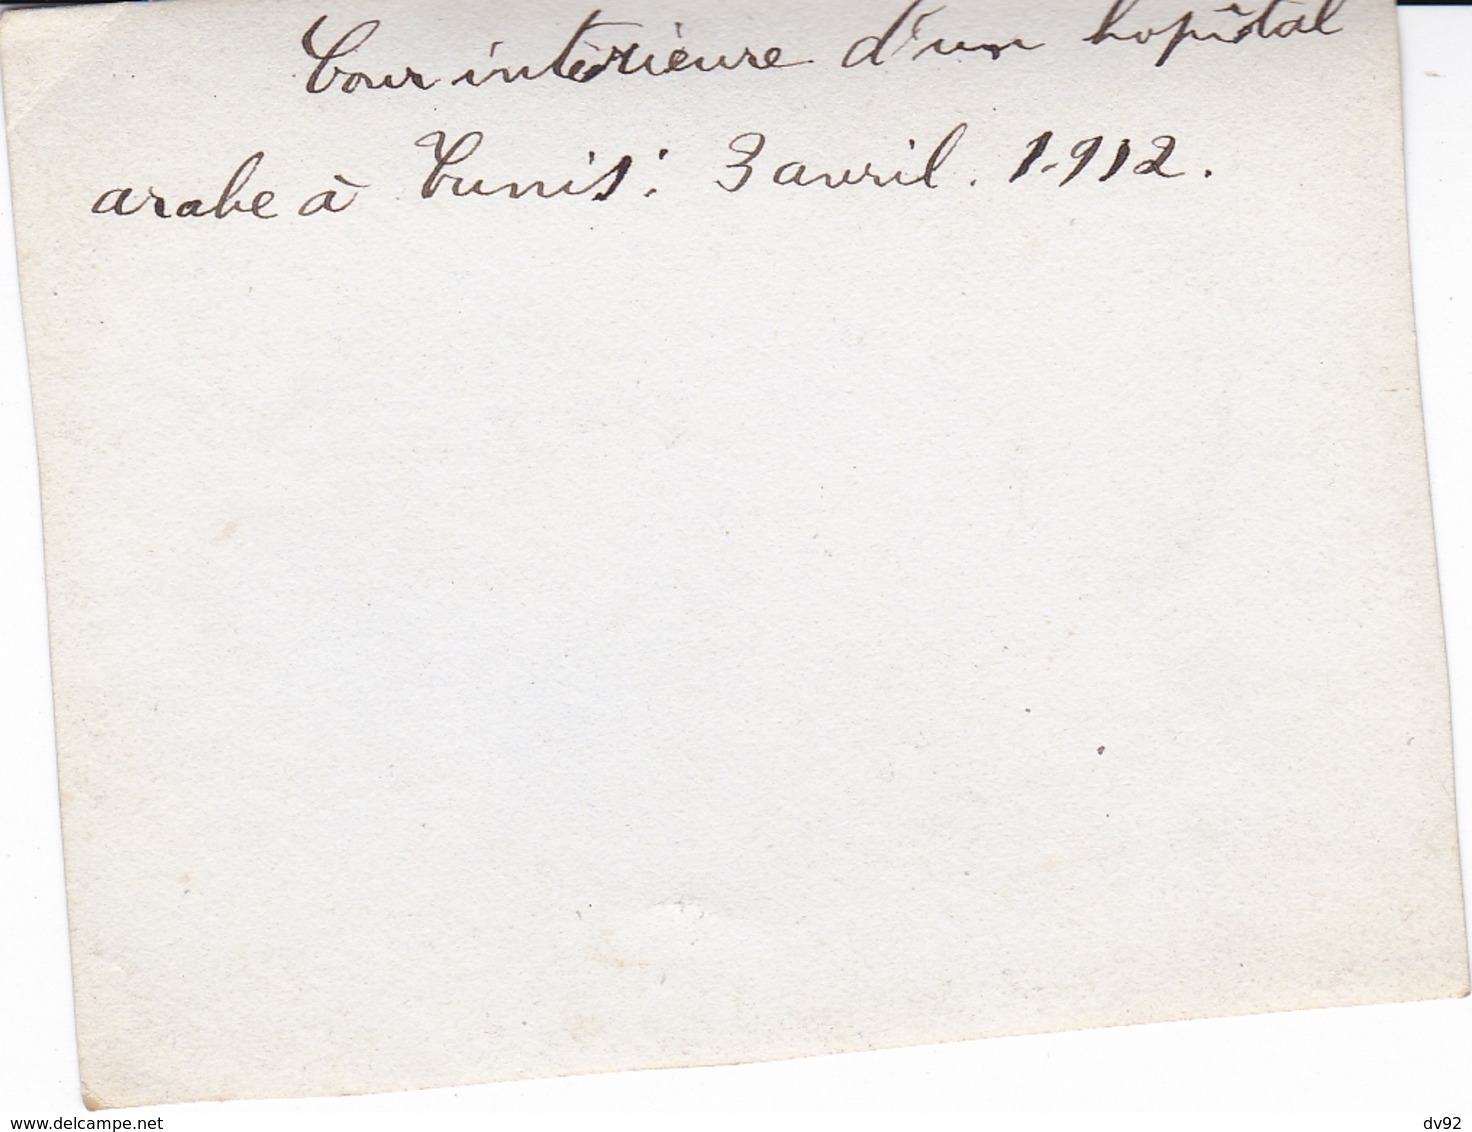 Cour intérieure d'un hopîtal
arabe à Tunis: 3 avril. 1912.
www.delcampe.net
dv92